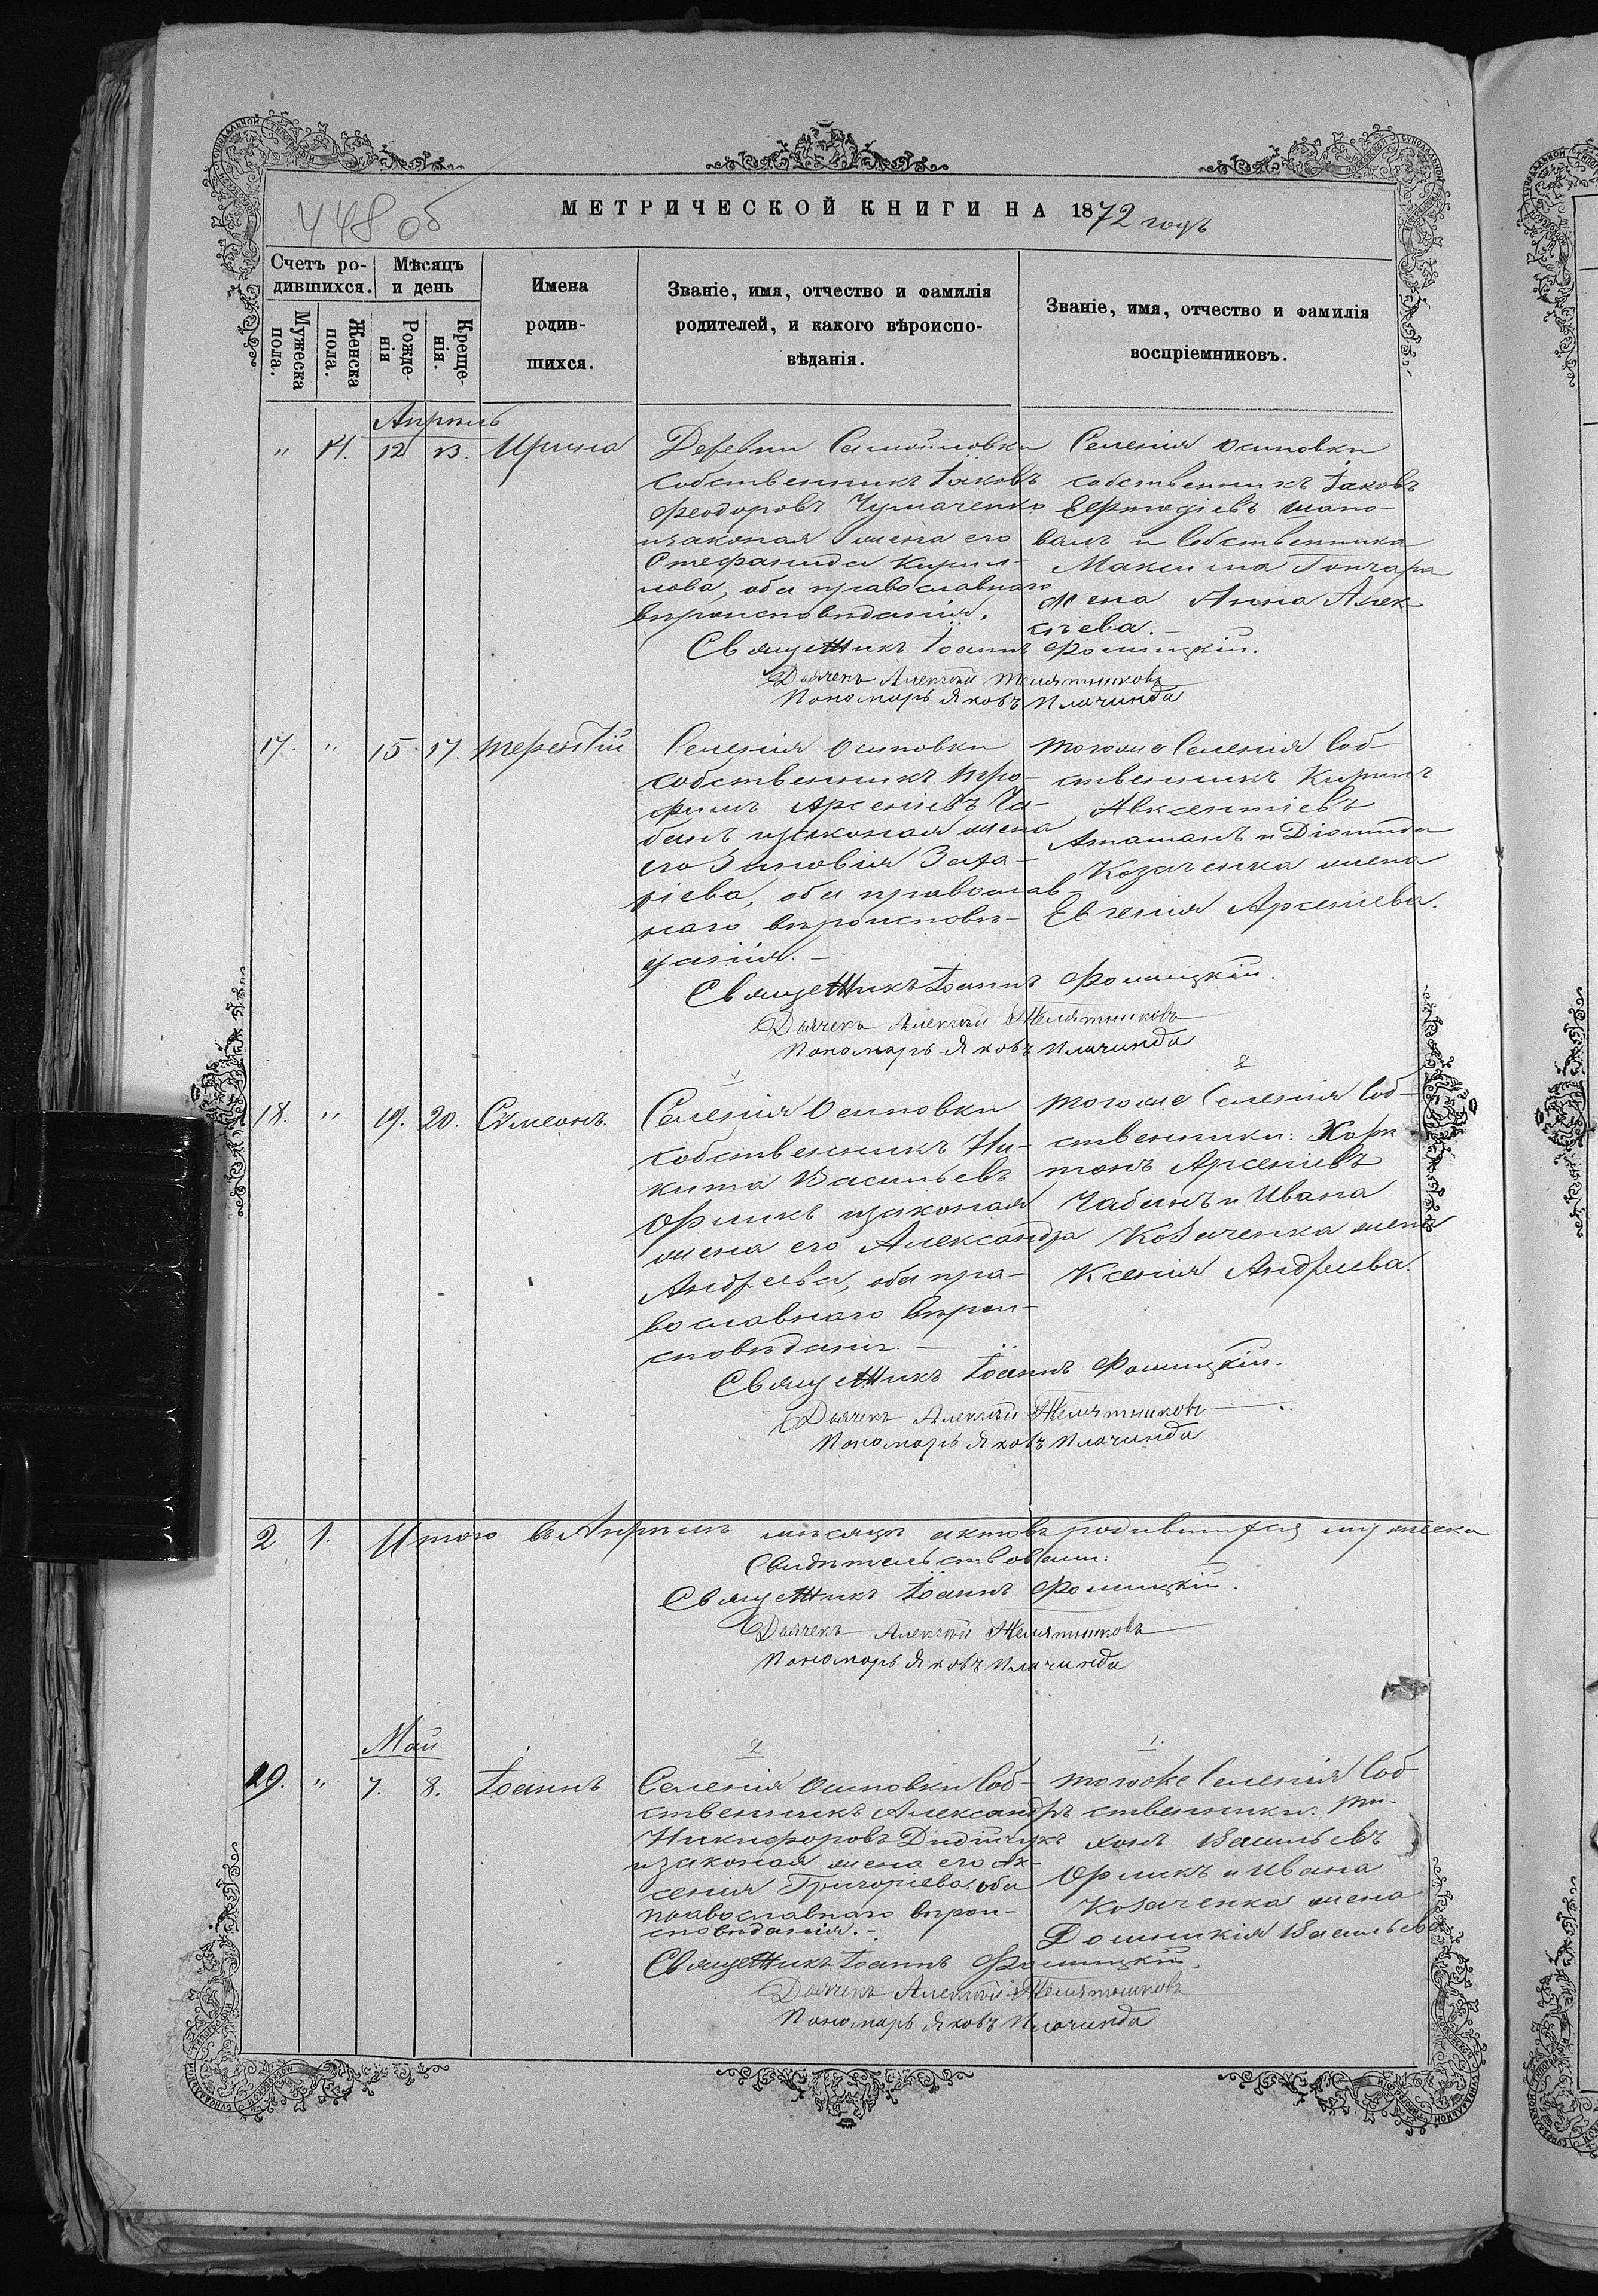 448 об
МЕТРИЧЕСКОЙ КНИГИ НА 1872 годъ
Счетъ ро-
дившихся.
Мѣсяцъ
и день
Имена
родив-
шихся.
Званіе, имя, отчество и фамилія
родителей, и какого вѣроиспо-
вѣданія.
Званіе, имя, отчество и фамилія
воспріемниковъ.
Мужеска
пола.
Женска
пола.
Рожде-
нія
Креще-
нія.
Апрѣль
" 12 13. Ирина
Деревни Самойловки
собственникъ Іаковъ
Феодоровъ Чумаченко
и законая жена его
Стефанида Кирил-
лова, оба православнаго
вѣроисповѣданія.
Селенія Осиповки
собственникъ Іаковъ
Шапо-
валъ и собственника
Максима Гончара
жена Анна Алек-
сѣева.
Священникъ Іоаннъ Фомицкій.
Дьячекъ Алексѣй Телятниковъ
Пономарь Яковъ Плачинда
17. " 15. 17. Терентій
Селенія Осиповки
собственникъ Тро-
фимъ Арсеніевъ Ча-
банъ и законая жена
его Зиновія Заха-
ріева, оба православ-
наго вѣроисповѣ-
данія.
Тогоже Селенія Соб-
ственникъ Кирилъ
Авксентіевъ
Атаманъ и Діомида
Козаченка жена
Евгенія Арсеніева.
Священникъ Іоаннъ Фомицкій.
Дьячекъ Алексѣй Телятниковъ
Пономарь Яковъ Плачинда
1 2
18. " 19. 20. Сѵмеонъ.
Селенія Осиповки
собственникъ Ни-
кита Васильевъ
Орликъ и законая
жена его Александра
Андреева, оба пра-
вославнаго вѣрои-
сповѣданія.
Тогоже Селенія Соб-
ственники: Хари-
тонъ Арсеніевъ
Чабанъ и Ивана
Козаченка жена
Ксенія Андреева.
Священникъ Іоаннъ Фомицкій.
Дьячекъ Алексѣй Телятниковъ
Пономарь Яковъ Плачинда
2 1. Итого въ Апрѣлѣ мѣсяцѣ актовъ родившихся мужеска
Свидѣтельствовали:
Священникъ Іоаннъ Фомицкій.
Дьячекъ Алексѣй Телятниковъ
Пономарь Яковъ Плачинда
Май
2 1.
19. " 7. 8. Іоаннъ
Селенія Осиповки Соб-
ственникъ Александръ
Никифоровъ Дидичукъ
и законая жена его Ак-
сенія Григоріева, оба
православнаго вѣрои-
сповѣданія.
Тогоже Селенія Соб-
ственники: Ти-
хонъ Васильевъ
Орликъ и Ивана
Козаченка жена
Домникія Васильева
Священникъ Іоаннъ Фомицкій.
Дьячекъ Алексѣй Телятниковъ
Пономарь Яковъ Плачинда